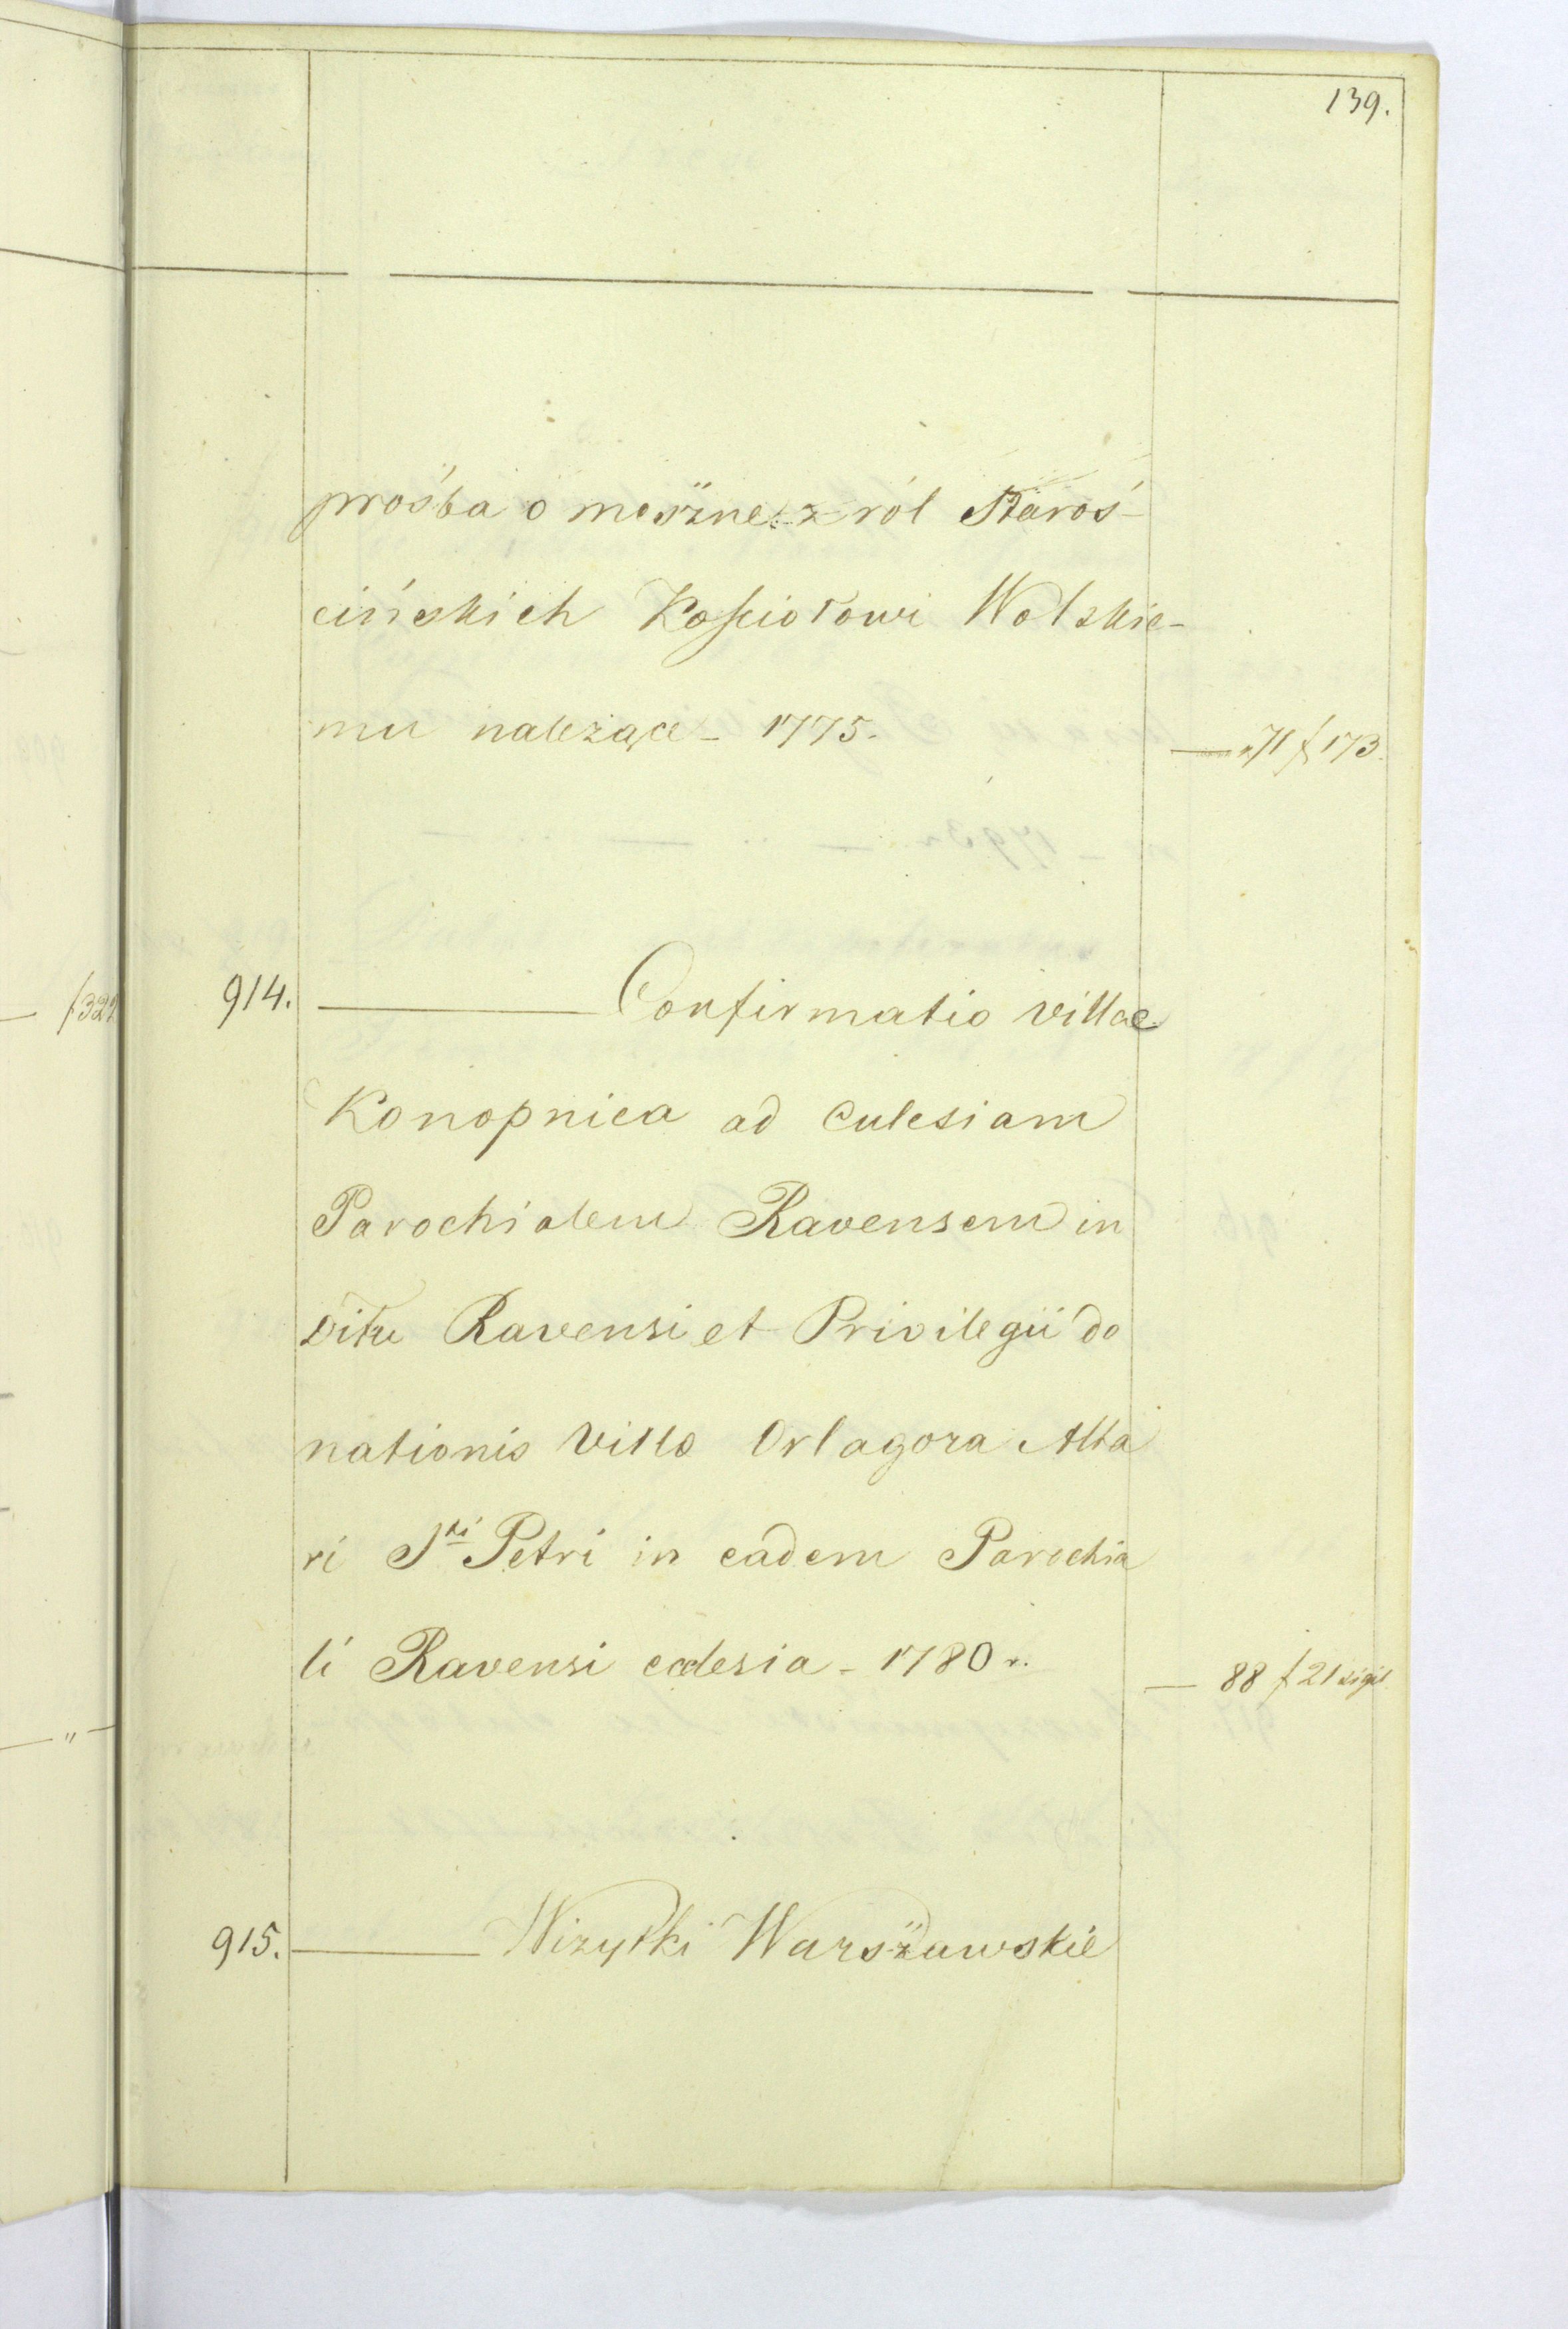 139.
prośba o meszne z ról Staroś-
cińskich Kościołowi Wolskie-
mu należące - 1775. — 71 f 173.
914. — Confirmatio villae
Konopnica ad Eulesiam
Parochialem Ravensem in
Ditu Ravensi et Privilegii do
nationis villa Orlagora Alta
ri S<sup>ti</sup> Petri in eadem Parochia
li Ravensi ecclesia - 1780 r. — 88 f 21 sigil.
915. — Wizytki Warszawskie